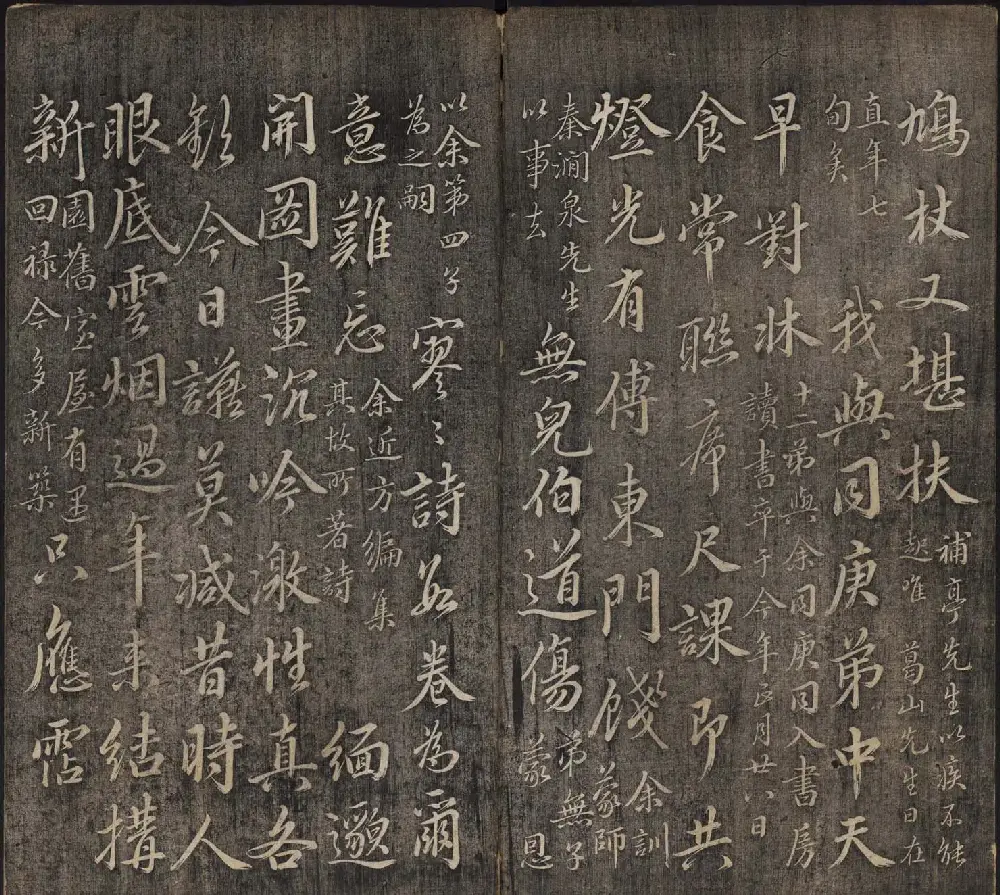 鳩杖又堪扶補亭先生以疾不能趍唯 葛山先生日在
直年七旬矣 我與同庚弟中天
早對牀十二弟與余同庚同入書房讀書卒于今年正月廿八日
食常聯席尺課即共
燈光有傅東門餞余訓蒙師
秦澗泉先生以事去無兒伯道傷弟無子蒙 恩
以余第四子為之嗣寥〻詩數卷為爾
意難忘余近方編集其故所著詩 緬邈
開圖畫沉吟激性真各
欽今日讌莫減昔時人
眼底雲烟過年来結構
新園舊室屋有遇回禄今多新築只應霑